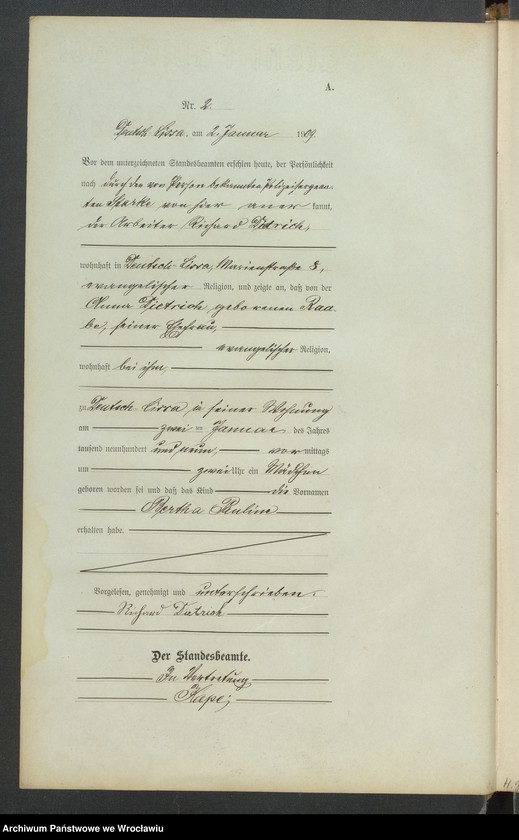 A.
Nr. 2.
Deutsch Lissa, am 2. Januar 1909.
Vor dem unterzeichneten Standesbeamten erschien heute, der Persönlichkeit
nach durch den von Person bekannten Polizeisergean-
ten Starke von hier aner kannt,
der Arbeiter Richard Dietrich,
wohnhaft in Deutsch-Lissa, Marienstraße 8,
evangelischer Religion, und zeigte an, daß von der
Anna Dietrich geborenen Raa-
be, seiner Ehefrau,
evangelischer Religion,
wohnhaft bei ihm
zu Deutsch-Lissa in seiner Wohnung
am zwei ten Januar des Jahres
tausend neunhundert und neun, vor mittags
um zwei Uhr ein Mädchen
geboren worden sei und daß das Kind die Vornamen
Bertha Pauline
erhalten habe.
Vorgelesen, genehmigt und unterschrieben.
Richard Dietrich
Der Standesbeamte.
In Vertretung
Archiwum Państwowe we Wrocławiu